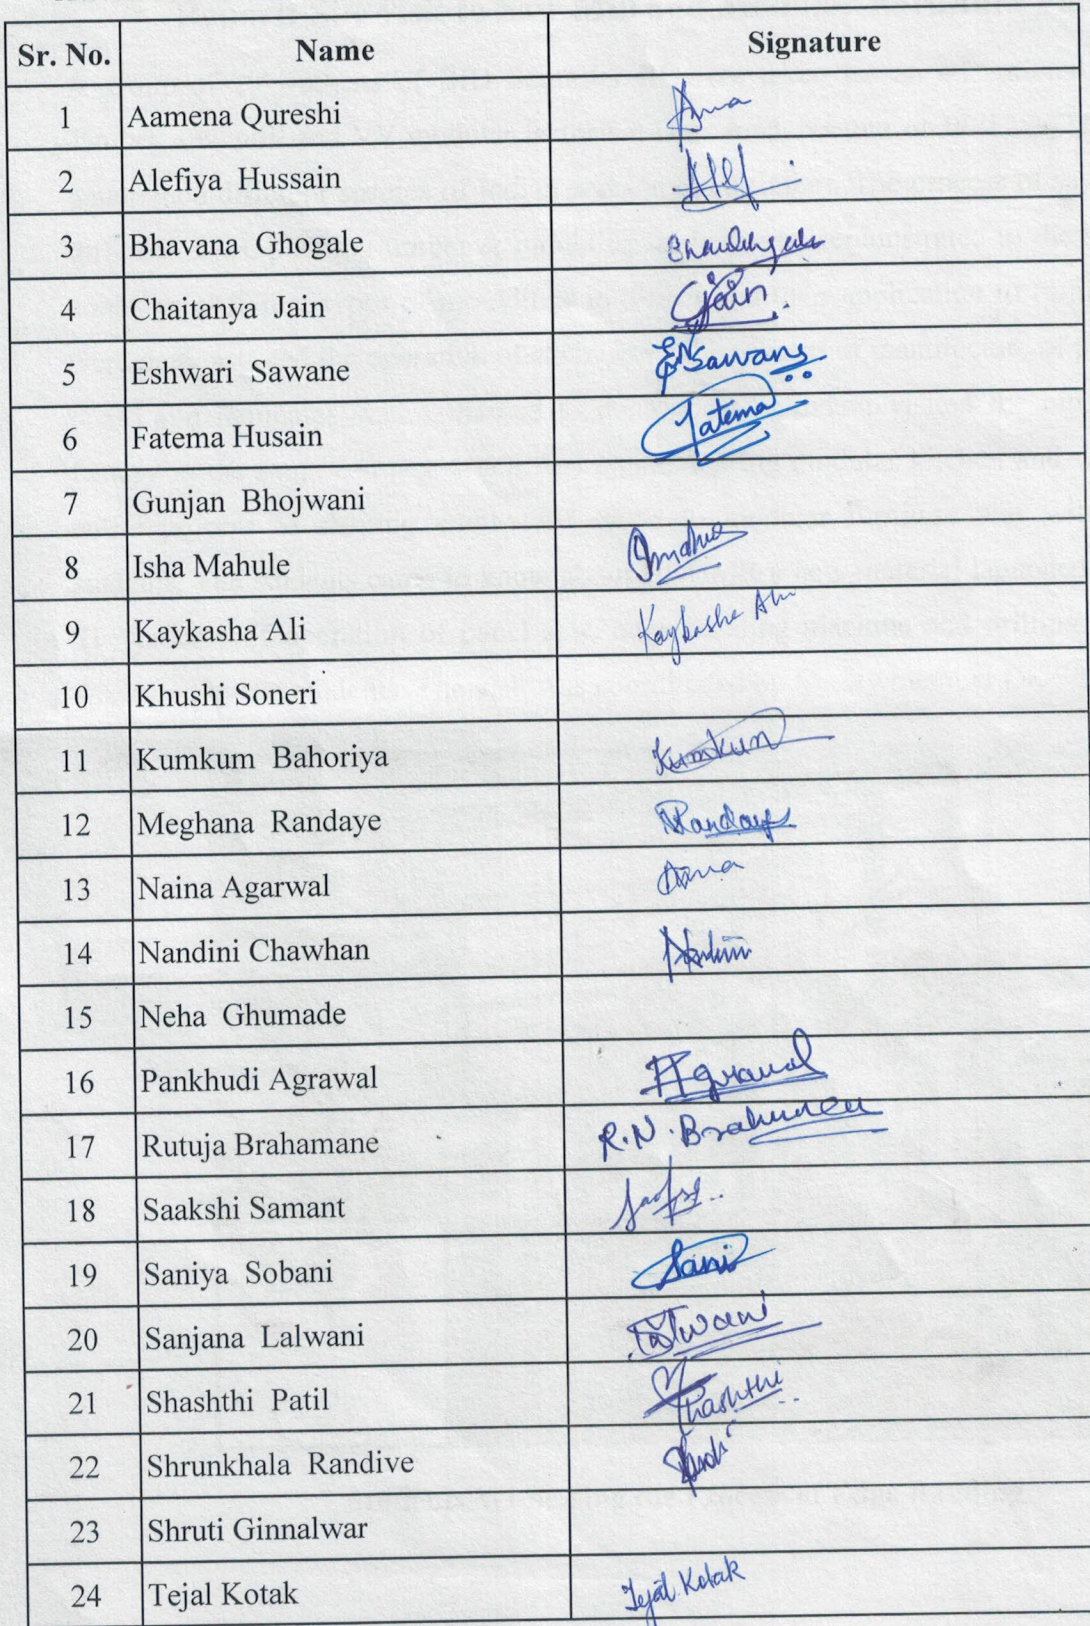 Sr. No. Name Signature
1 Aamena Qureshi
2 Alefiya Hussain
3 Bhavana Ghogale
4 Chaitanya Jain Jain
5 Eshwari Sawane Sawane
6 Fatema Husain Fatema
7 Gunjan Bhojwani
8 Isha Mahule
9 Kaykasha Ali Kaykasha Ali
10 Khushi Soneri
11 Kumkum Bahoriya Kumkum
12 Meghana Randaye Randaye
13 Naina Agarwal
14 Nandini Chawhan
15 Neha Ghumade
16 Pankhudi Agrawal Agrawal
17 Rutuja Brahamane R.N.
18 Saakshi Samant
19 Saniya Sobani Sani
20 Sanjana Lalwani Lalwani
21 Shashthi Patil Shashthi
22 Shrunkhala Randive
23 Shruti Ginnalwar
24 Tejal Kotak Tejal Kotak